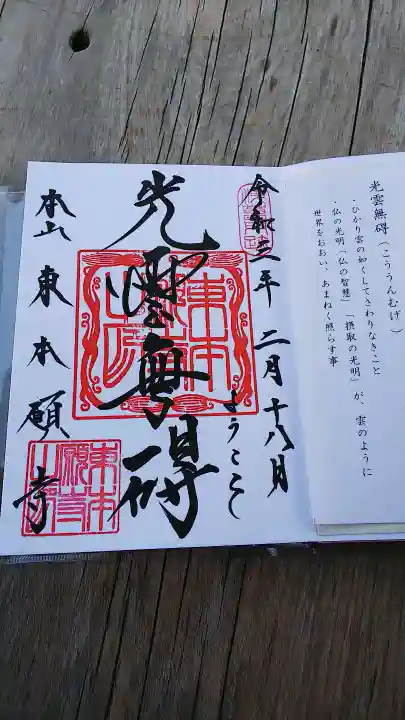 光雲無碍(こううんむげ)
・ひかり雲の如くしてさわりなきこと
・仏の光明「仏の智慧」「摂取の光明」が、雲のように
世界をおおい、あまねく照らす事
令和三年 二月十八日
ようこそ
光雲無碍
本山 東本願寺